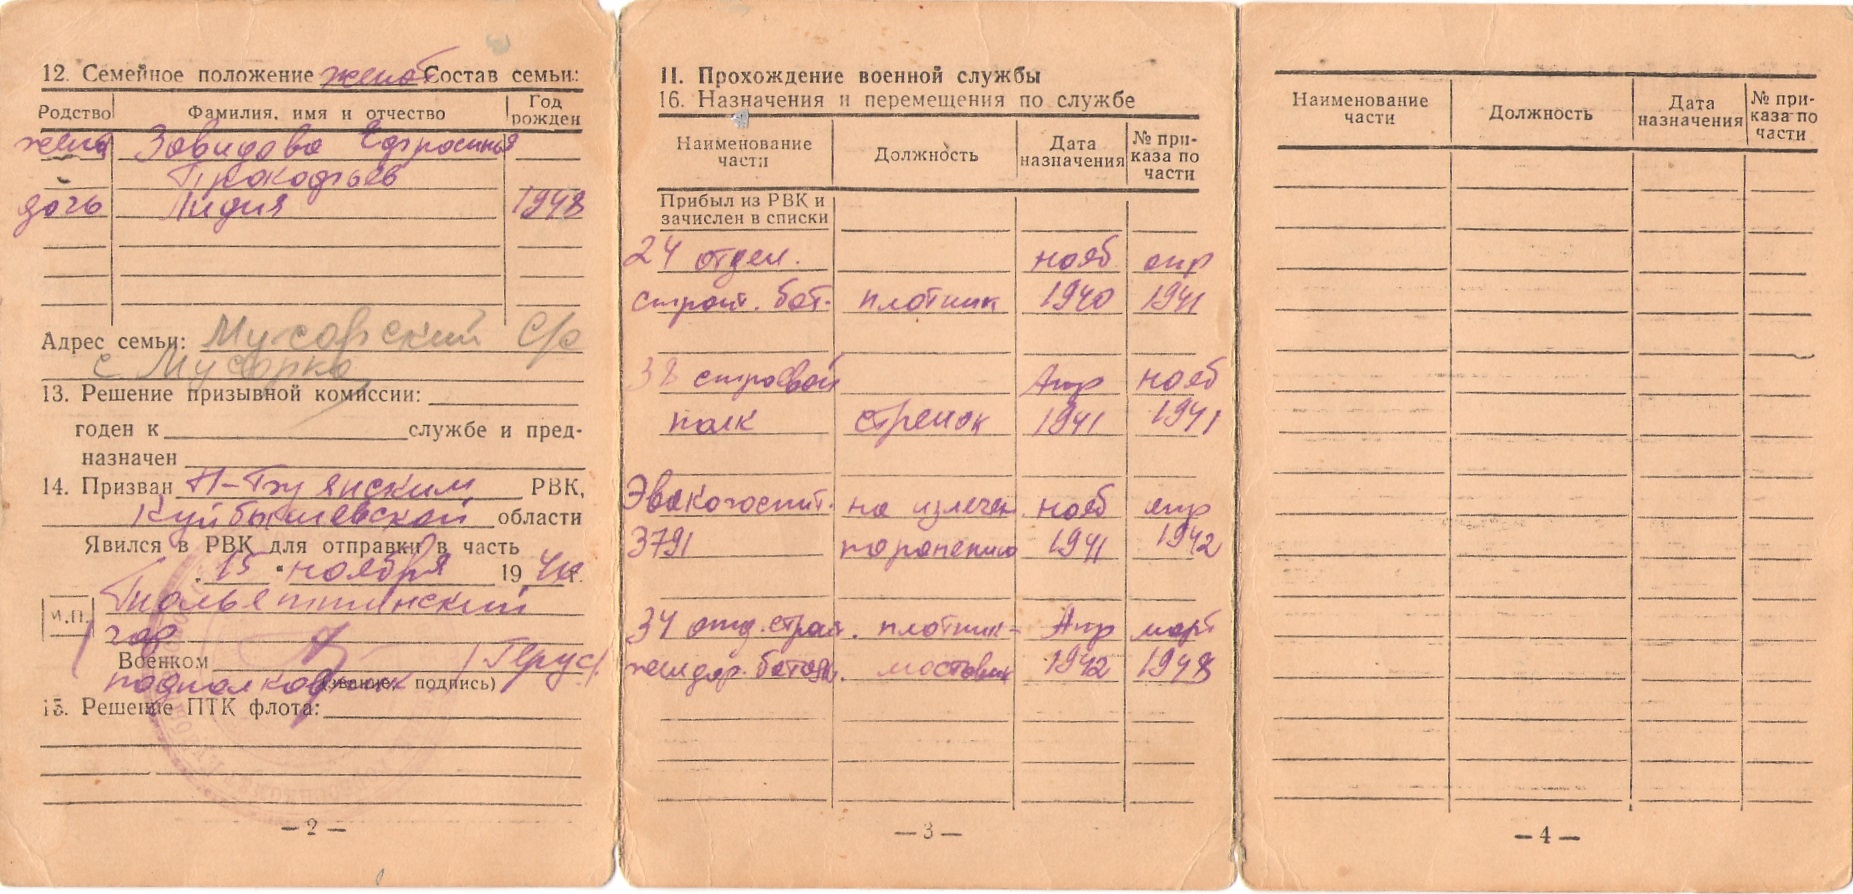 12. Семейное положение женат Состав семьи:
Родство Фамилия, имя и отчество Год рожден
жена Завидова Ефросинья
Прокофьев
дочь Лидия 1948
Адрес семьи: Мусорский С/с
с Мусорка
13. Решение призывной комиссии:
годен к службе и пред-
назначен
14. Призван РВК,
Куйбышевской области
Явился в РВК для отправки в часть
15 ноября 1940 г.
Тольяттинский
М.П. гор
Военком
подполковник (звание, подпись)
15. Решение ПТК флота:
— 2 —
II. Прохождение военной службы
16. Назначения и перемещения по службе
Наименование части Должность Дата назначения № при-каза по части
Прибыл из РВК и
зачислен в списки
24 отдел. нояб апр
строит. бат. плотник 1940 1941
38 стровой Апр нояб
полк стрелок 1941 1941
Эвакогоспит. на излечен. нояб апр
3791 по ранению 1941 1942
34 отд. строит. плотник- Апр март
желдор. батал. мостовик 1942 1948
— 3 —
Наименование части Должность Дата назначения № при-каза по части
— 4 —